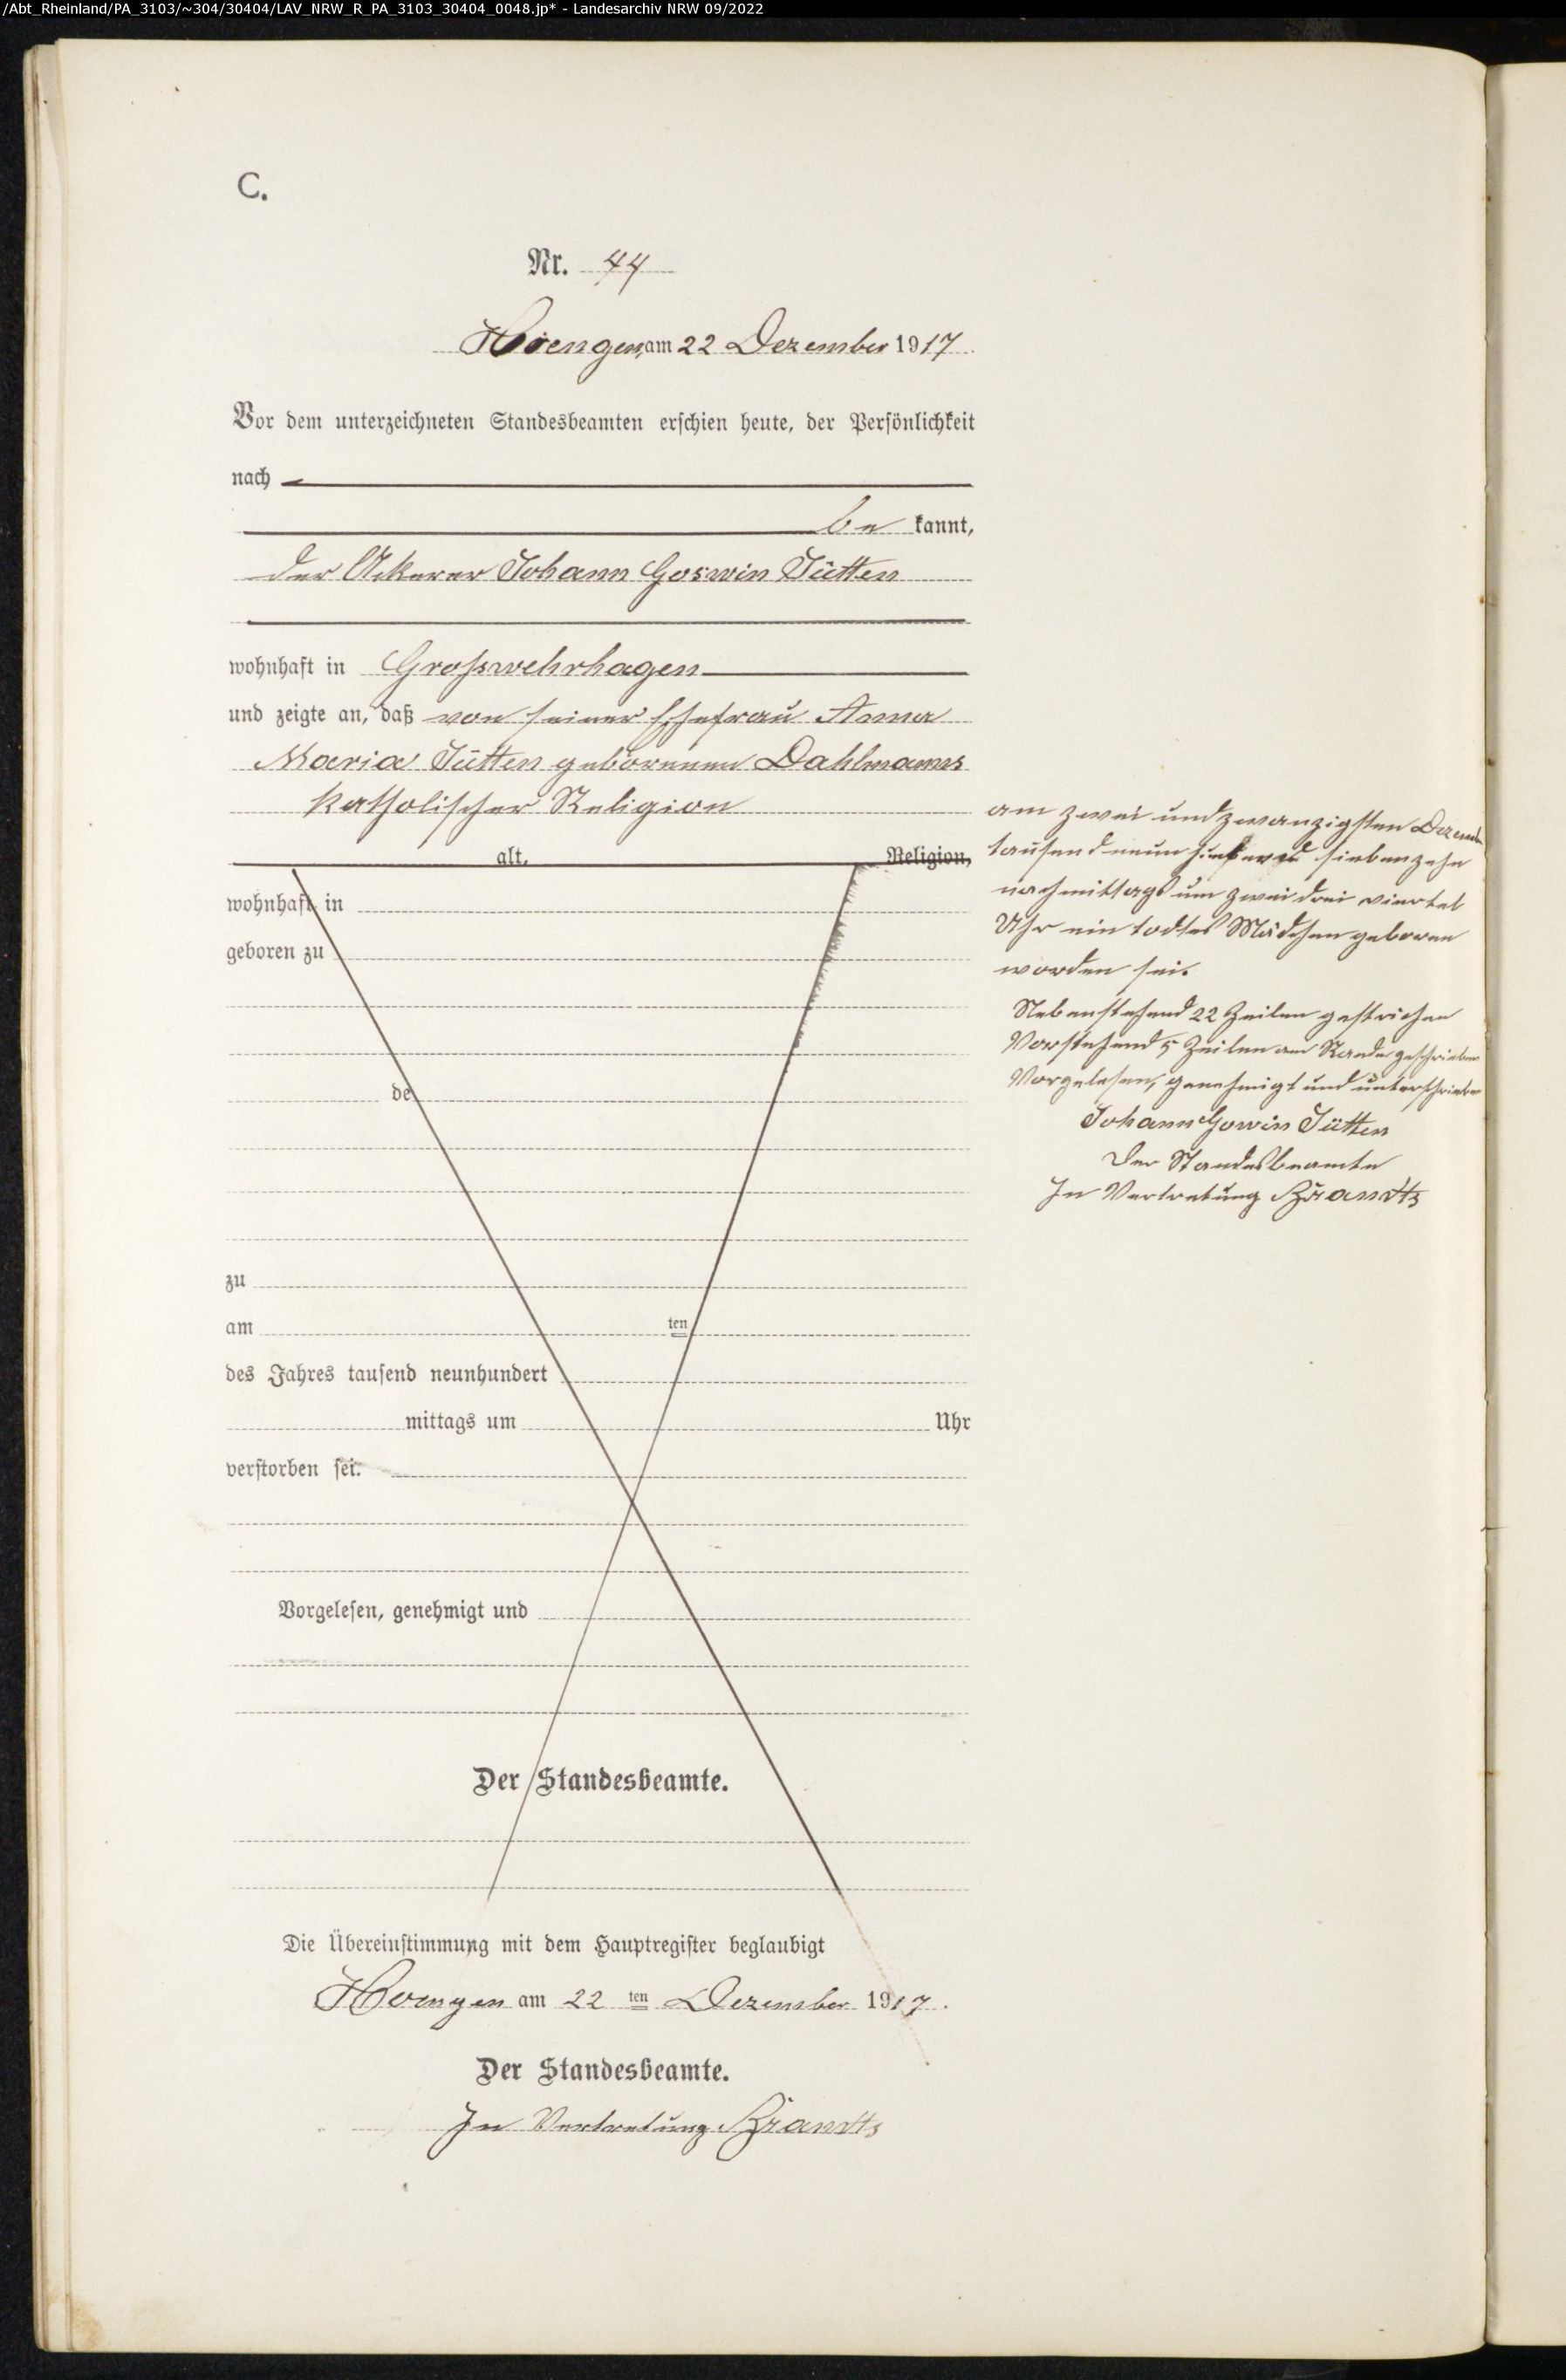 /Abt_Rheinland/PA_3103/~304/30404/LAV_NRW_R_PA_3103_30404_0048.jp* - Landesarchiv NRW 09/2022
C.
Nr. 44
Hoengen, am 22 Dezember 1917
Vor dem unterzeichneten Standesbeamten erschien heute, der Persönlichkeit
nach
be kannt,
der Ackerer Johann Goswin Jütten
wohnhaft in Großwehrhagen
und zeigte an, daß von seiner Ehefrau Anna
Maria Jütten geborenen Dahlmanns
katholischer Religion
alt, Religion,
wohnhaft in
geboren zu
de
zu
am ten
des Jahres tausend neunhundert
mittags um Uhr
verstorben sei.
Vorgelesen, genehmigt und
Der Standesbeamte.
Die Übereinstimmung mit dem Hauptregister beglaubigt
Hoengen am 22 ten Dezember 1917.
Der Standesbeamte.
In Vertretung Brandts
am zwei und zwanzigsten Dezember
tausend neun hundert siebenzehn
nachmittags um zwei drei viertel
Uhr ein todtes Mädchen geboren
worden sei.
Nebenstehend 22 Zeilen gestrichen
Vorstehend 5 Zeilen am Rande geschrieben
Vorgelesen, genehmigt und unterschrieben
Johann Gowin Jütten
Der Standesbeamte
In Vertretung Brandts